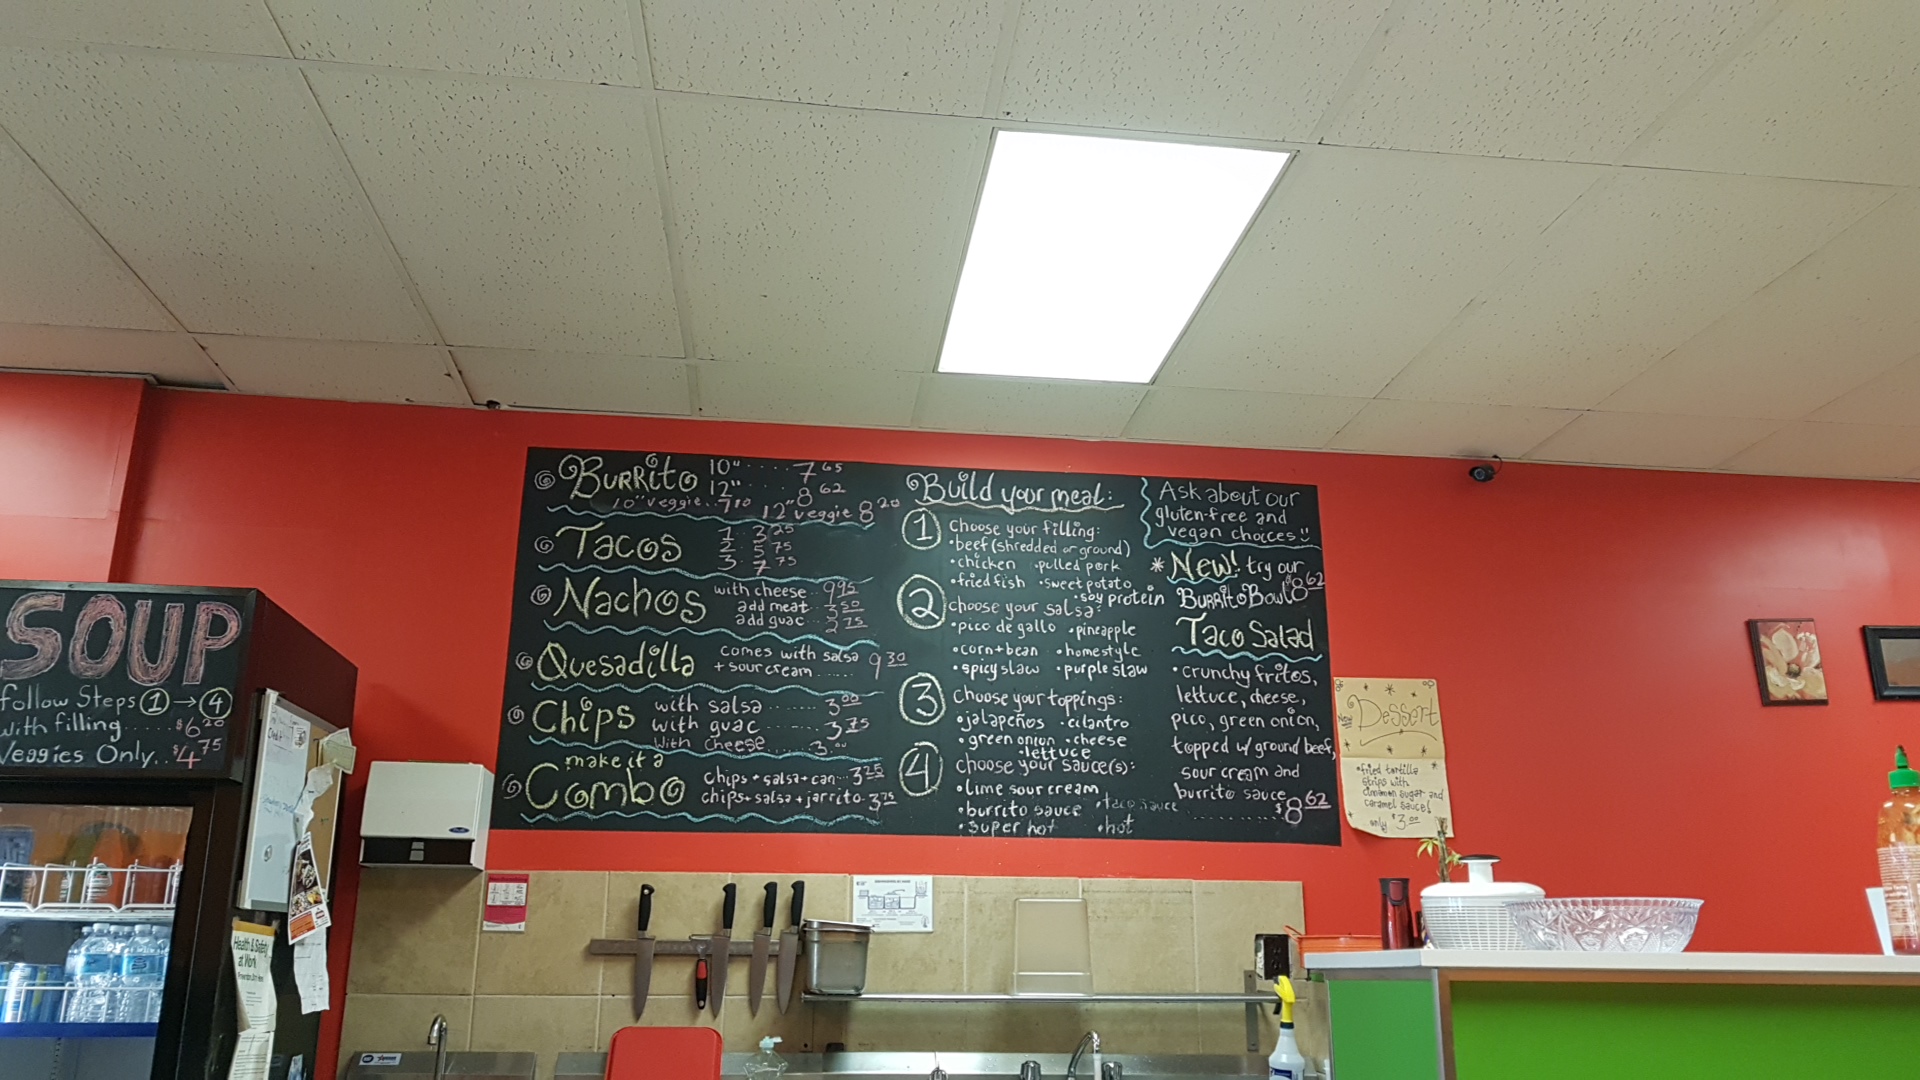 SOUP
follow Steps 1 → 4
with filling..... $6.20
Veggies Only.. $4.75
Burrito 10" .... 7.65
12" .... 8.62
10" veggie.. 7.10 12" veggie 8.20
Tacos
1. 3.25
2. 5.75
3. 7.75
Nachos with cheese.. 9.95
add meat.. 3.50
add guac.. 2.75
Quesadilla comes with salsa
+ sour cream ...... 9.30
Chips with salsa ....... 3.00
with guac ...... 3.75
with cheese ...... 3.00
make it a
Combo chips + salsa + can... 3.25
chips + salsa + jarrito. 3.75
Build your meal:
1 Choose your filling:
• beef (shredded or ground)
• chicken • pulled pork
• fried fish • sweet potato
• soy protein
2 choose your salsa:
• pico de gallo • pineapple
• corn + bean • homestyle
• spicy slaw • purple slaw
3 Choose your toppings:
• jalapeños • cilantro
• green onion • cheese
• lettuce
4 choose your sauce(s):
• lime sour cream
• burrito sauce • taco sauce
• super hot • hot
Ask about our
gluten-free and
vegan choices!!
* New! try our
Burrito Bowl $8.62
Taco Salad
• crunchy fritos,
lettuce, cheese,
pico, green onion,
topped w/ ground beef,
sour cream and
burrito sauce
........... $8.62
New
Dessert
• fried tortilla
strips with
cinnimon sugar and
caramel sauce!
only $3.00
Health & Safety
at Work